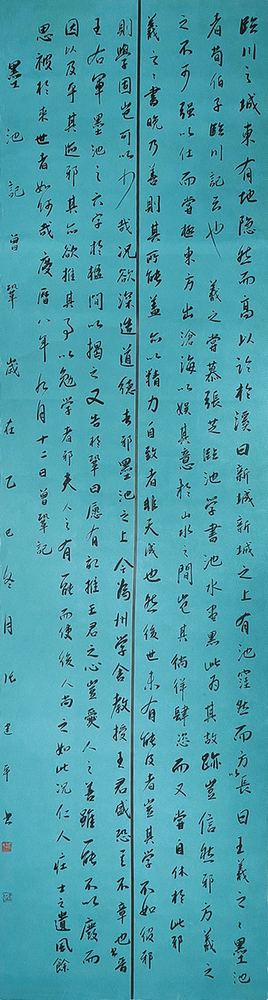 臨川之城東有地隱然而高以臨於溪曰新城新城之上有池窪然而方以長曰王羲之之墨池
者荀伯子臨川記云也 羲之嘗慕張芝臨池學書池水盡黑此為其故跡豈信然邪方羲之
之不可強以仕而嘗極東方出滄海以娛其意於山水之間豈其徜徉肆恣而又嘗自休於此邪
羲之之書晚乃善則其所能蓋亦以精力自致者非天成也然後世未有能及者豈其學不如彼邪
則學固豈可以少哉況欲深造道德者邪墨池之上今為州學舍教授王君盛恐其不章也書晉
王右軍墨池之六字於楹間以揭之又告於鞏曰願有記推王君之心豈愛人之善雖一能不以廢而
因以及乎其跡邪其亦欲推其事以勉學者邪夫人之有一能而使後人尚之如此況仁人莊士之遺風餘
思被於來世者如何哉慶曆八年九月十二日曾鞏記
墨池記 曾鞏 歲在乙巳冬月 張建平書